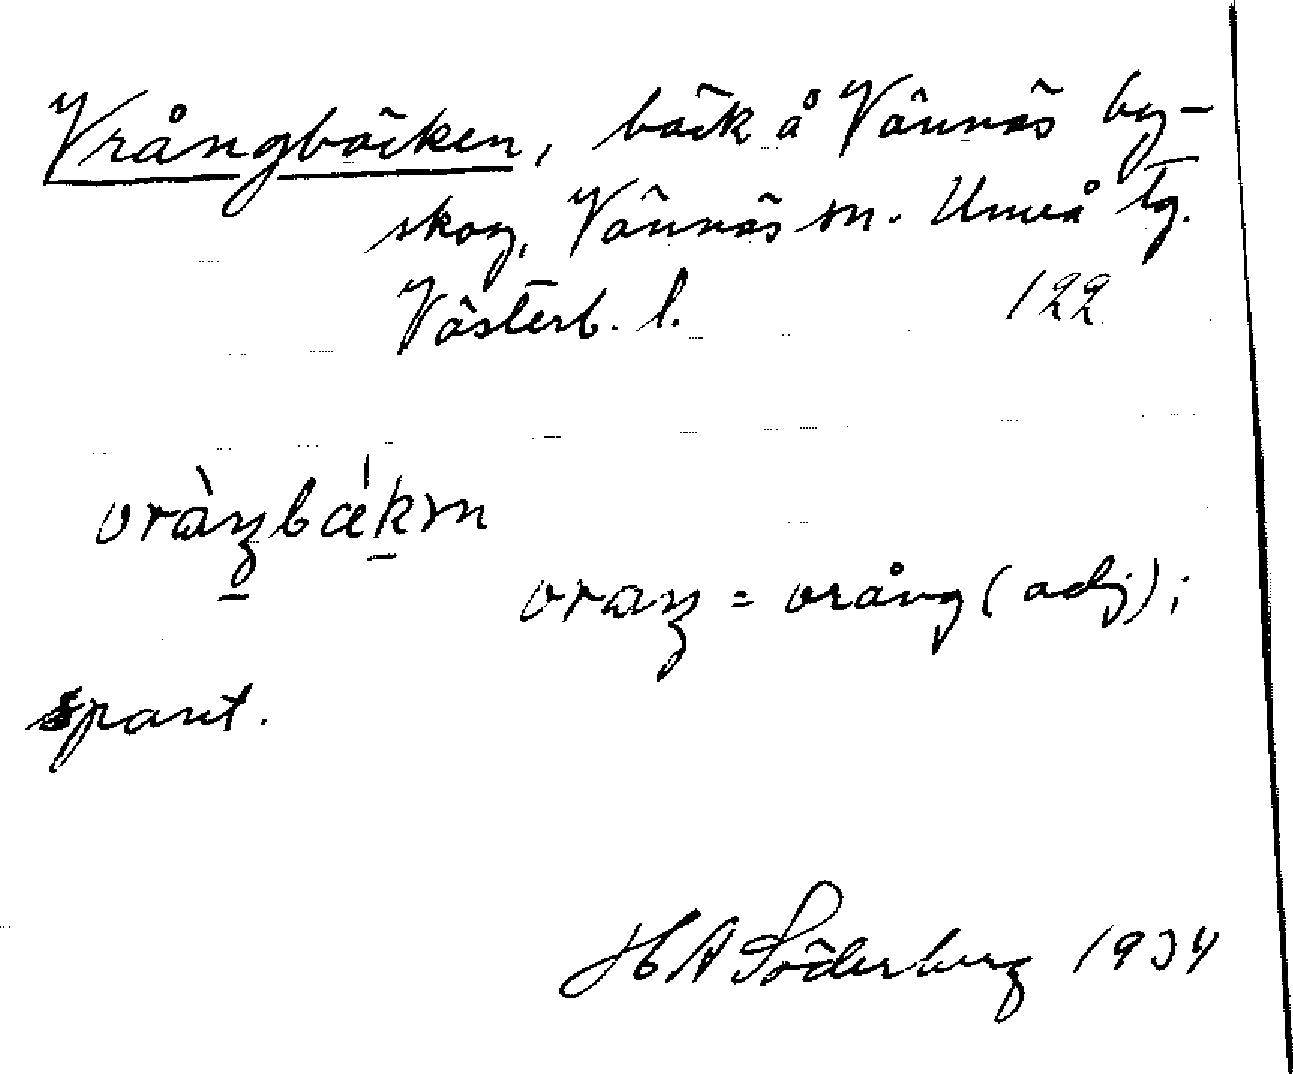 Vrångbäcken, bäck å Vännäs by-
skog, Vännäs sn. Umeå tg.
Västerb. l. 122
vràŋbækən
vraŋ = vrång (adj);
spant.
H A Söderberg 1934